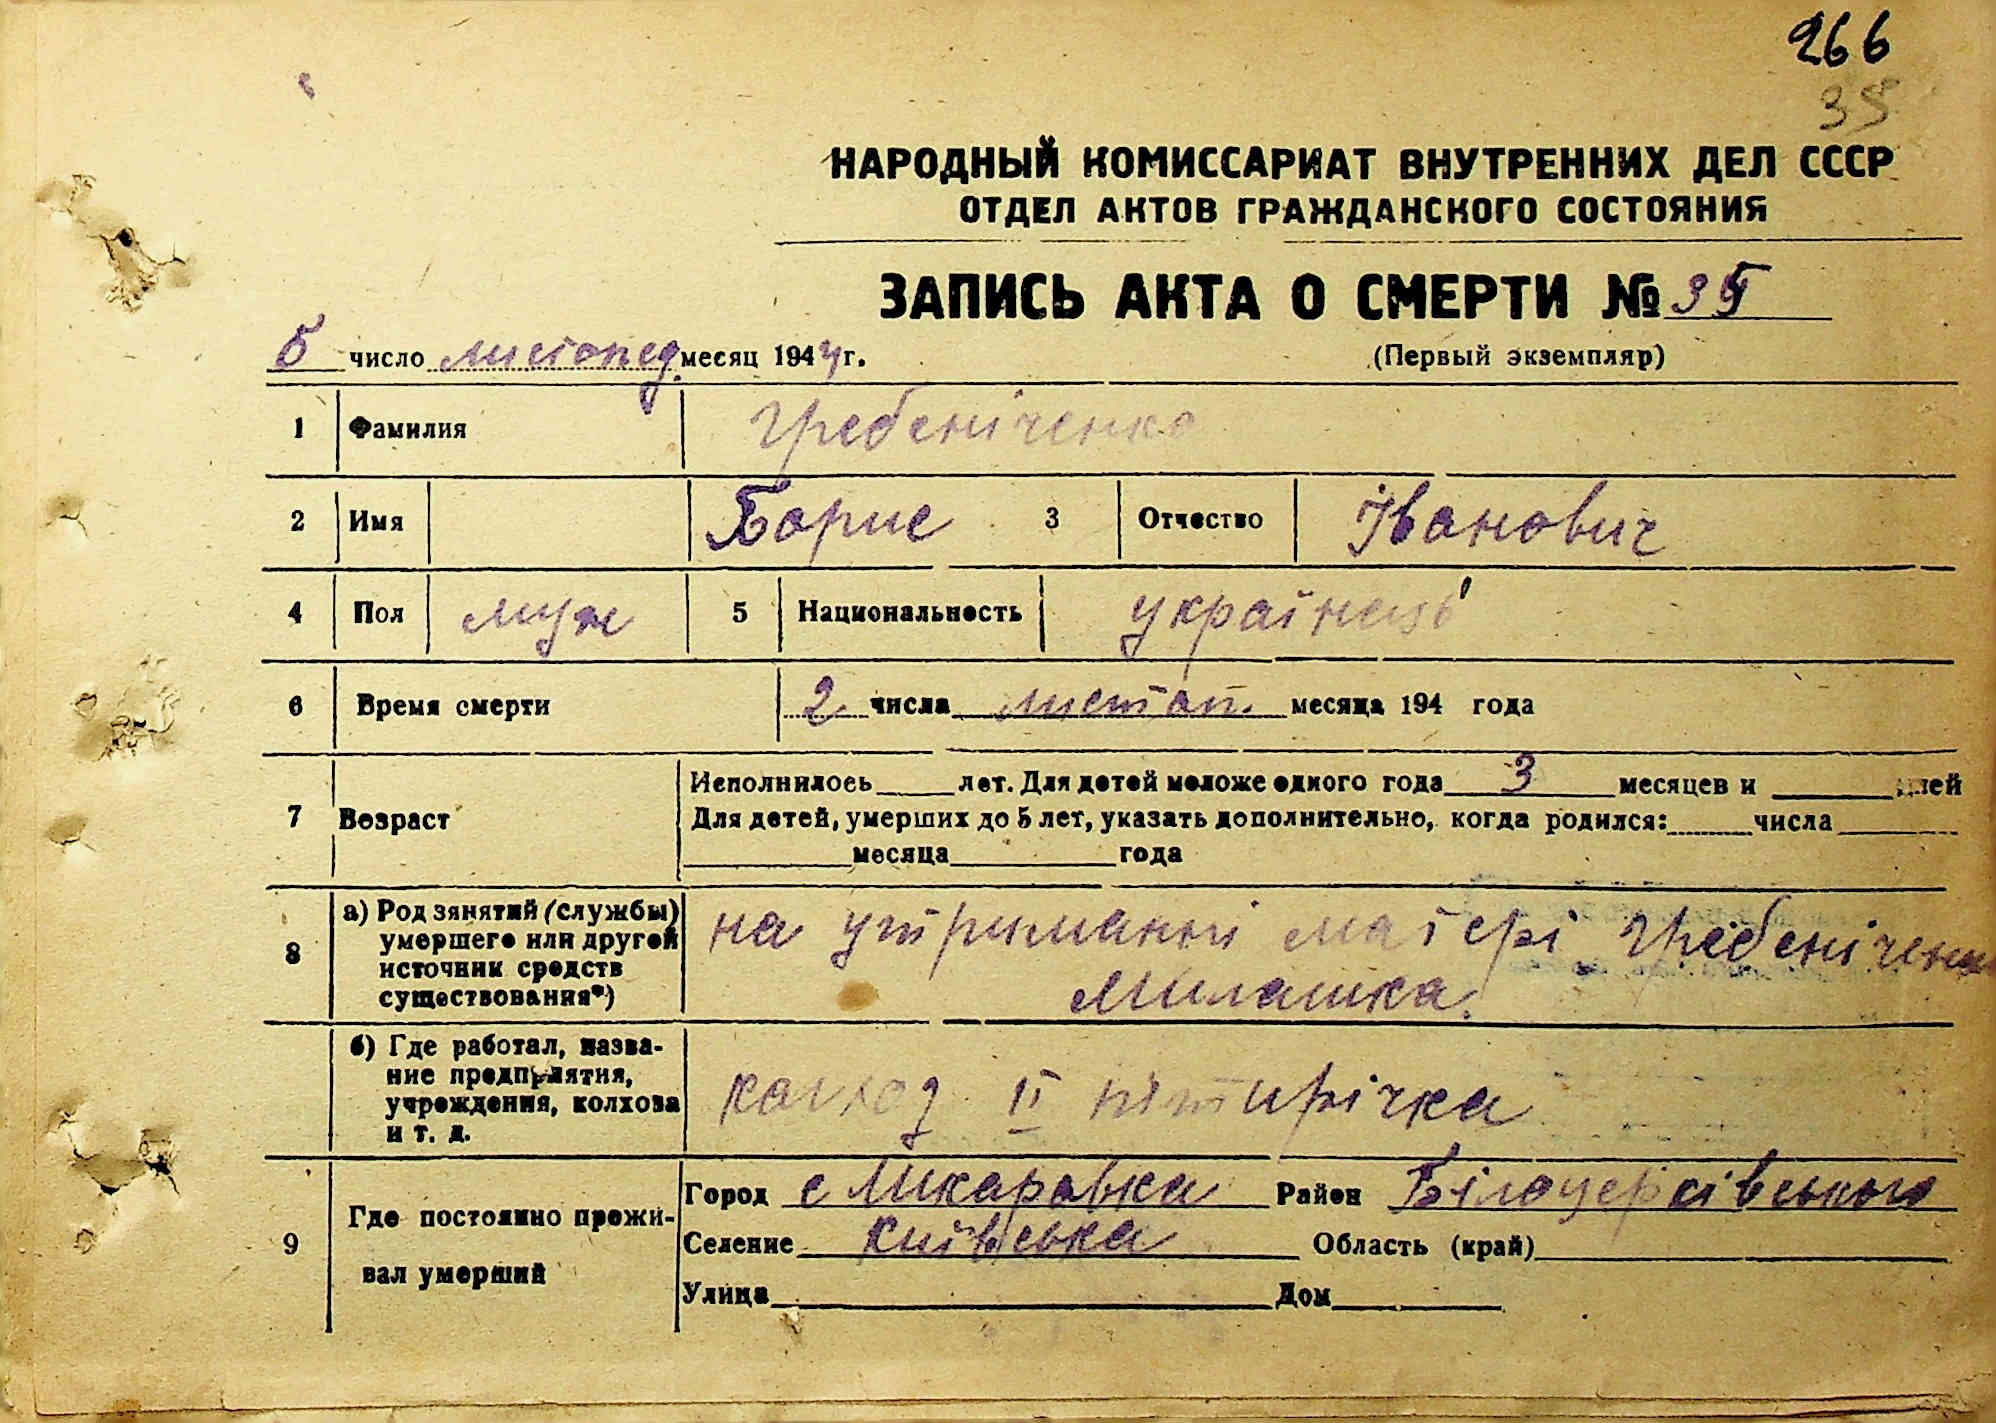 266
35
НАРОДНЫЙ КОМИССАРИАТ ВНУТРЕННИХ ДЕЛ СССР
ОТДЕЛ АКТОВ ГРАЖДАНСКОГО СОСТОЯНИЯ
ЗАПИСЬ АКТА О СМЕРТИ № 35
5 число листопад месяц 1944 г. (Первый экземпляр)
1 Фамилия Гребеніченко
2 Имя Борис 3 Отчество Іванович
4 Пол муж 5 Национальность українець
6 Время смерти 2 числа листоп. месяца 194 года
7 Возраст Исполнилось лет. Для детей моложе одного года 3 месяцев и дней
Для детей, умерших до 5 лет, указать дополнительно, когда родился: числа
месяца года
8 а) Род занятий (службы) умершего или другой источник средств существования*) на утриманні матері Гребеніченко
Милашка.
б) Где работал, название предприятия, учреждения, колхоза и т. д. колгод II пятирічка
9 Где постоянно проживал умерший
Город с Макаровка Район Білоцерківського
Селение Київська Область (край)
Улица Дом